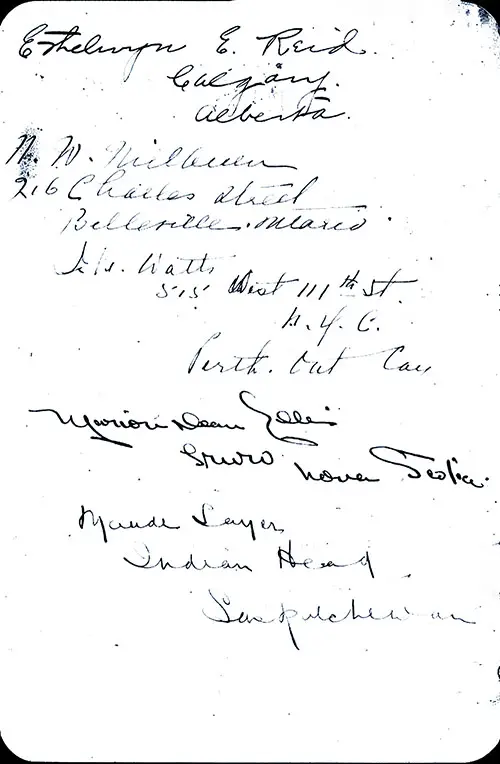 Ethelwyn E. Reid.
Calgary.
Alberta.
N. W.
216 Charles Street
Belleville. Ontario.
Watts
515 West 111th St.
N. Y. C.
Perth. Ont Can
Marion Dean Ellis
Truro
Nova Scotia.
Maude Sayer
Indian Head
Saskatchewan